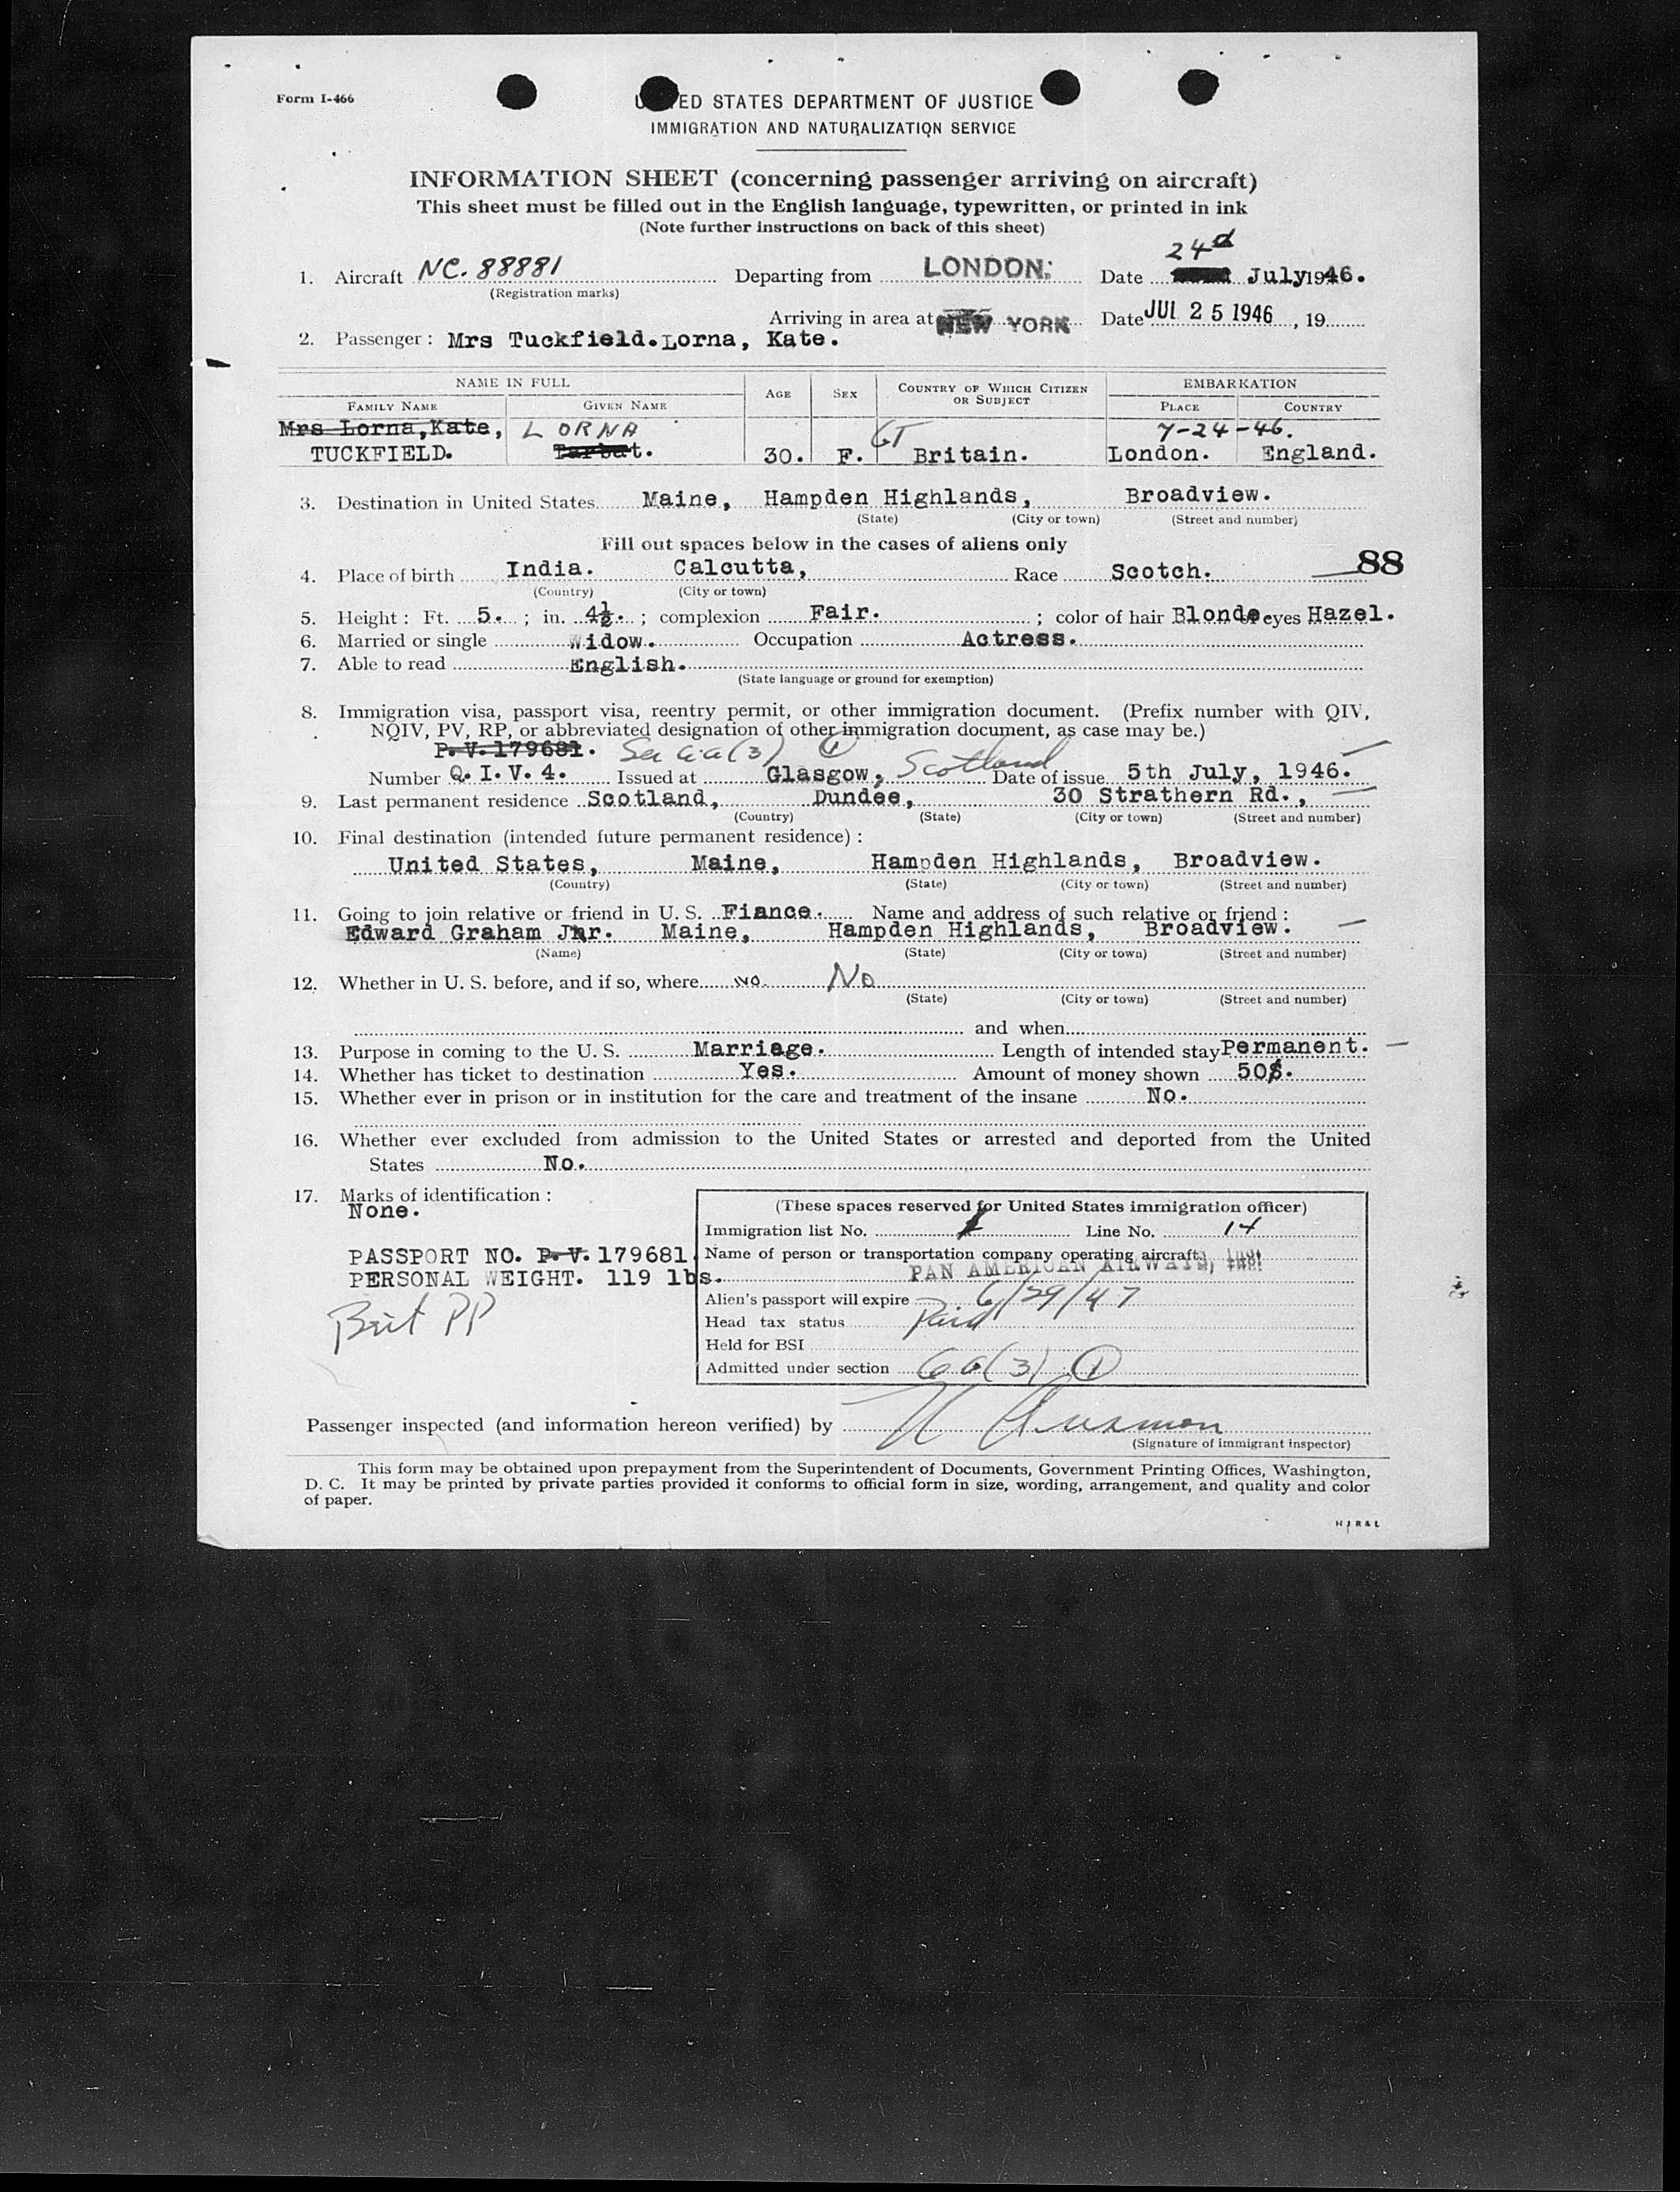 Form I-466
UNITED STATES DEPARTMENT OF JUSTICE
IMMIGRATION AND NATURALIZATION SERVICE
INFORMATION SHEET (concerning passenger arriving on aircraft)
This sheet must be filled out in the English language, typewritten, or printed in ink
(Note further instructions on back of this sheet)
24d
1. Aircraft NC. 88881 Departing from LONDON. Date July 1946.
(Registration marks)
Arriving in area at NEW YORK Date JUL 25 1946, 19
2. Passenger: Mrs Tuckfield. Lorna, Kate.
NAME IN FULL AGE SEX COUNTRY OF WHICH CITIZEN OR SUBJECT EMBARKATION
FAMILY NAME GIVEN NAME PLACE COUNTRY
Mrs Lorna, Kate, LORNA GT 7-24-46.
TUCKFIELD. 30. F. Britain. London. England.
3. Destination in United States Maine, Hampden Highlands, Broadview.
(State) (City or town) (Street and number)
Fill out spaces below in the cases of aliens only
88
4. Place of birth India. Calcutta, Race Scotch.
(Country) (City or town)
5. Height: Ft. 5. ; in. 4½. ; complexion Fair. ; color of hair Blonde eyes Hazel.
6. Married or single Widow. Occupation Actress.
7. Able to read English.
(State language or ground for exemption)
8. Immigration visa, passport visa, reentry permit, or other immigration document. (Prefix number with QIV,
NQIV, PV, RP, or abbreviated designation of other immigration document, as case may be.)
P.V.179681. (3) 1
Number Q.I.V.4. Issued at Glasgow, Scotland Date of issue 5th July, 1946.
9. Last permanent residence Scotland, Dundee, 30 Strathern Rd.,
(Country) (State) (City or town) (Street and number)
10. Final destination (intended future permanent residence):
United States, Maine, Hampden Highlands, Broadview.
(Country) (State) (City or town) (Street and number)
11. Going to join relative or friend in U. S. Fiance. Name and address of such relative or friend:
Edward Graham Jnr. Maine, Hampden Highlands, Broadview.
(Name) (State) (City or town) (Street and number)
12. Whether in U. S. before, and if so, where NO. No
(State) (City or town) (Street and number)
and when
13. Purpose in coming to the U. S. Marriage. Length of intended stay Permanent.
14. Whether has ticket to destination Yes. Amount of money shown 50$.
15. Whether ever in prison or in institution for the care and treatment of the insane No.
16. Whether ever excluded from admission to the United States or arrested and deported from the United
States No.
17. Marks of identification:
None.
PASSPORT NO. P.V. 179681.
PERSONAL WEIGHT. 119 lbs.
Brit PP
(These spaces reserved for United States immigration officer)
Immigration list No. Line No. 14
Name of person or transportation company operating aircraft:
PAN AMERICAN AIRWAYS, Inc.
Alien's passport will expire 6/29/47
Head tax status Paid
Held for BSI
Admitted under section 6a(3) 1
Passenger inspected (and information hereon verified) by
(Signature of immigrant inspector)
This form may be obtained upon prepayment from the Superintendent of Documents, Government Printing Offices, Washington,
D. C. It may be printed by private parties provided it conforms to official form in size, wording, arrangement, and quality and color
of paper.
HJR&L